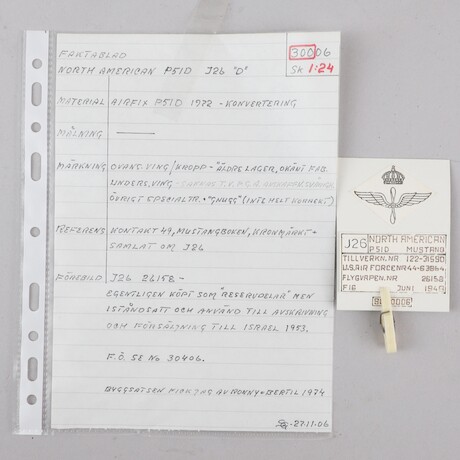 30006
SK 1:24
FAKTABLAD
NORTH AMERICAN P51D J26 "D"
MATERIAL AIRFIX P51D 1972 - KONVERTERING
MÅLNING
MÄRKNING OVANS. VING/KROPP - ÄLDRE LAGER, OKÄNT FAB.
UNDERS. VING -
ÖVRIGT SPECIALTR. "GHUGG" (INTE HELT KORREKT)
REFERENS KONTAKT 49, MUSTANGBOKEN, KRONMÄRKT -
SAMLAT OM J26
FÖREBILD J26 26158 -
EGENTLIGEN KÖPT SOM "RESERVDELAR" MEN
ISTÅNDSATT OCH ANVÄND TILL AVSKRIVNING
OCH FÖRSÄLJNING TILL ISRAEL 1953.
F.Ö. SE No 30406.
BYGGSATSEN FICK JAG AV RONNY + BERTIL 1974
-27-11-06
J26 NORTH AMERICAN
P51D MUSTANG
TILLVERKN.NR 122-31590
U.S. AIR FORCE NR 44-63864
FLYGVAPEN.NR 26158
F16 JUNI 1948